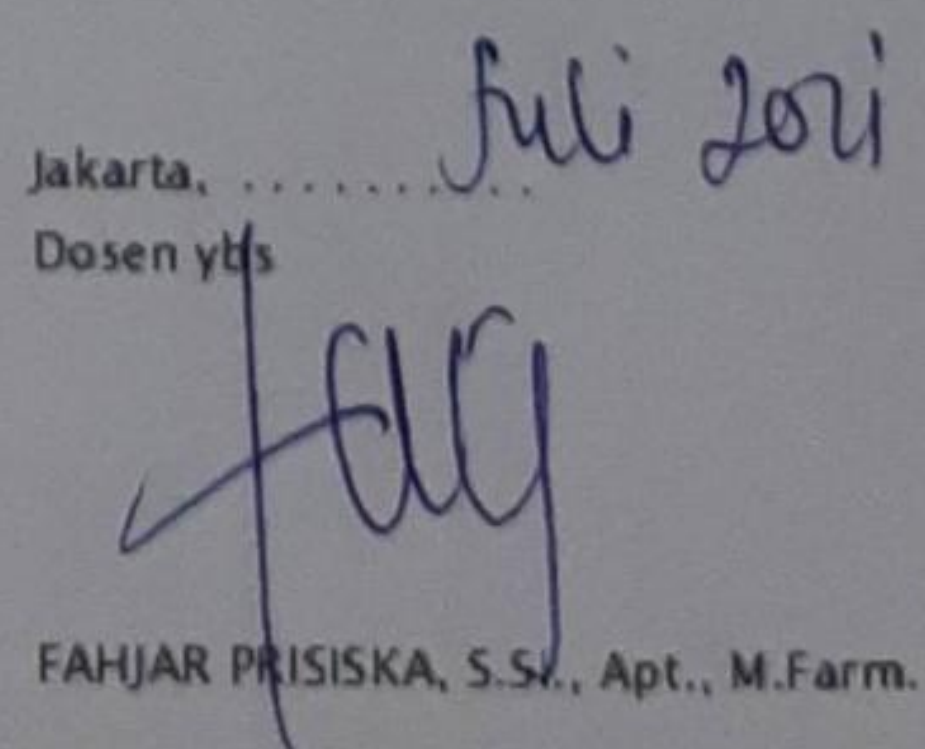 Jakarta, .......... Juli 2021
Dosen ybs
FAHJAR PRISISKA, S.Si., Apt., M.Farm.